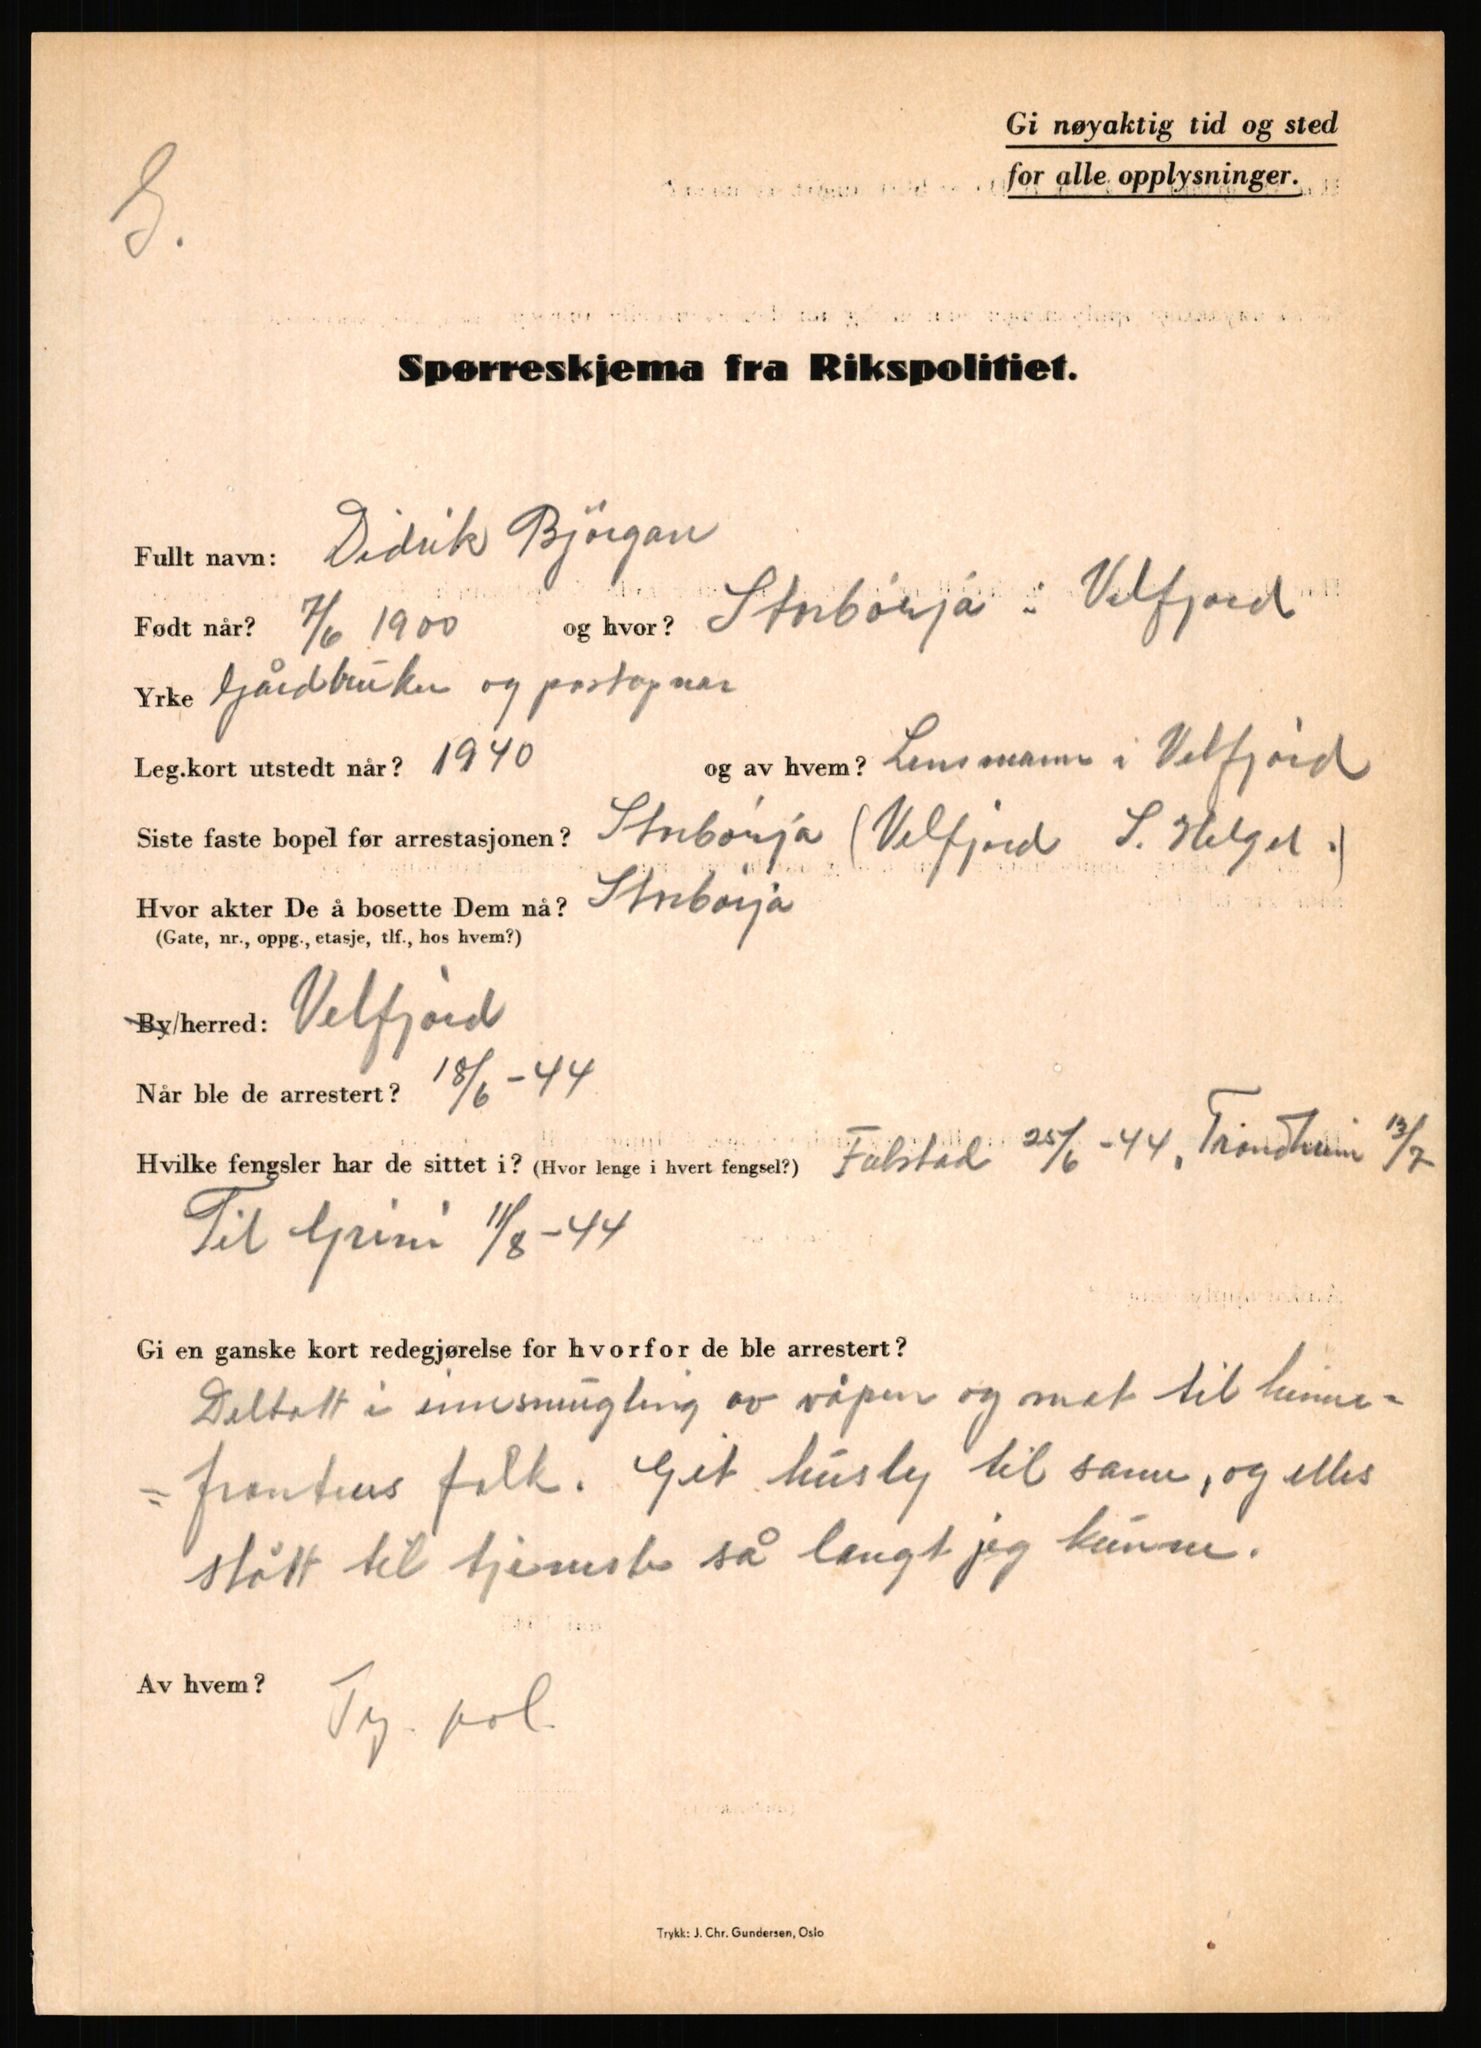 Gi nøyaktig tid og sted
for alle opplysninger.
S.
Spørreskjema fra Rikspolitiet.
Fullt navn: Didrik Björgan
Født når? 7/6 1900 og hvor? Storbörja i Velfjord
Yrke Gårdbruker og postopnar
Leg.kort utstedt når? 1940 og av hvem? Lensmann i Velfjord
Siste faste bopel før arrestasjonen? Storbörja (Velfjord S. Helgel.)
Hvor akter De å bosette Dem nå? Storbörja
(Gate, nr., oppg., etasje, tlf., hos hvem?)
By/herred: Velfjord
Når ble de arrestert? 18/6-44
Hvilke fengsler har de sittet i? (Hvor lenge i hvert fengsel?) Falstad 25/6-44, Trondheim 13/7
Til Grini 11/8-44
Gi en ganske kort redegjørelse for hvorfor de ble arrestert?
Deltatt i innsmugling av våpen og mat til himme=
=frontens folk. Git husly til samme, og elles
stått til tjeneste så langt jeg kunne.
Av hvem? Ty. pol.
Trykk: J. Chr. Gundersen, Oslo